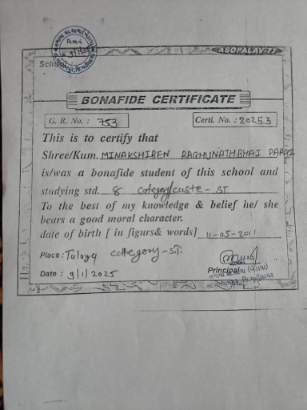 ASOPALAV-77
School
BONAFIDE CERTIFICATE
G. R. No. : 753 Certi. No. : 20253
This is to certify that
Shree/Kum. MINAKSHIBEN RAGHUNATHBHAI
is/was a bonafide student of this school and
studying std. 8 category/caste - ST
To the best of my knowledge & belief he/ she
bears a good moral character.
date of birth [ in figurs& words] 11-05-2011
Place : category - ST.
Date : 9/1/2025 Principal